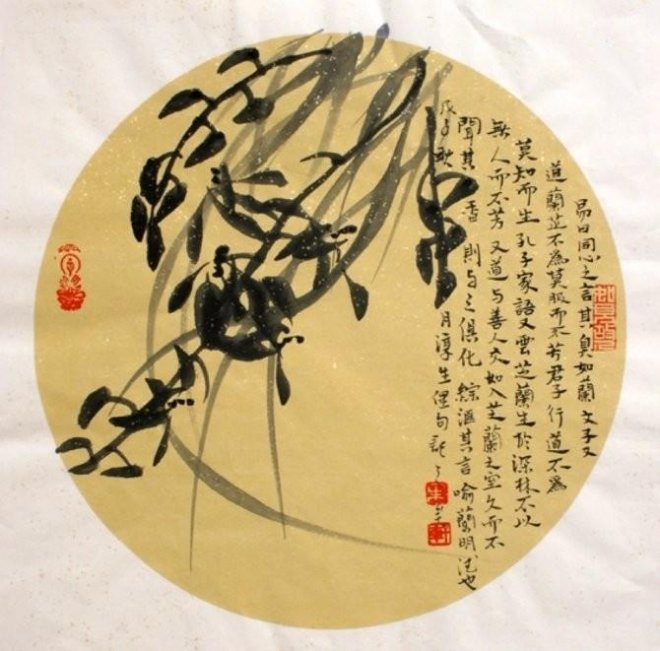 易曰同心之言其臭如蘭文子又
道蘭芷不為莫服而不芳君子行道不為
莫知而生孔子家語又雲芝蘭生於深林不以
無人而不芳又道与善人交如入芝蘭之室久而不
聞其香則与之俱化綜滙其言喻蘭明德也
戊子秋月淳生俚句